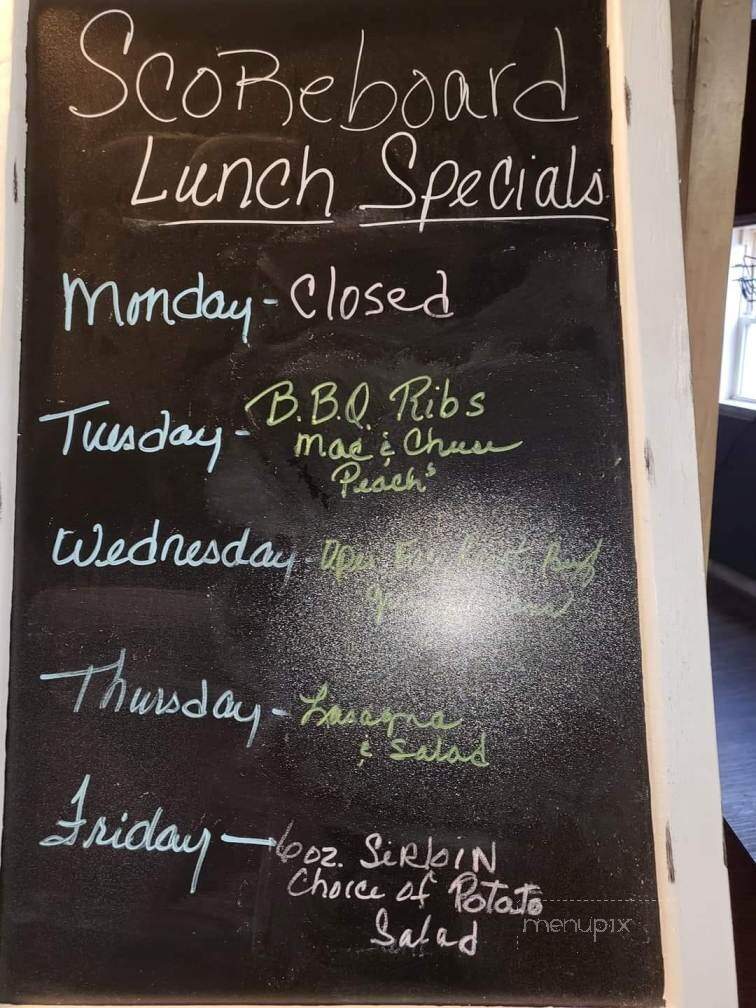 ScoReboard
Lunch Specials
Monday - Closed
Tuesday - B.B.Q. Ribs
Mac & Cheese
Peach's
Wednesday - Open Beef
Thursday - Lasagna
& Salad
Friday → 6oz. SiRloiN
Choice of Potato
Salad
menupix